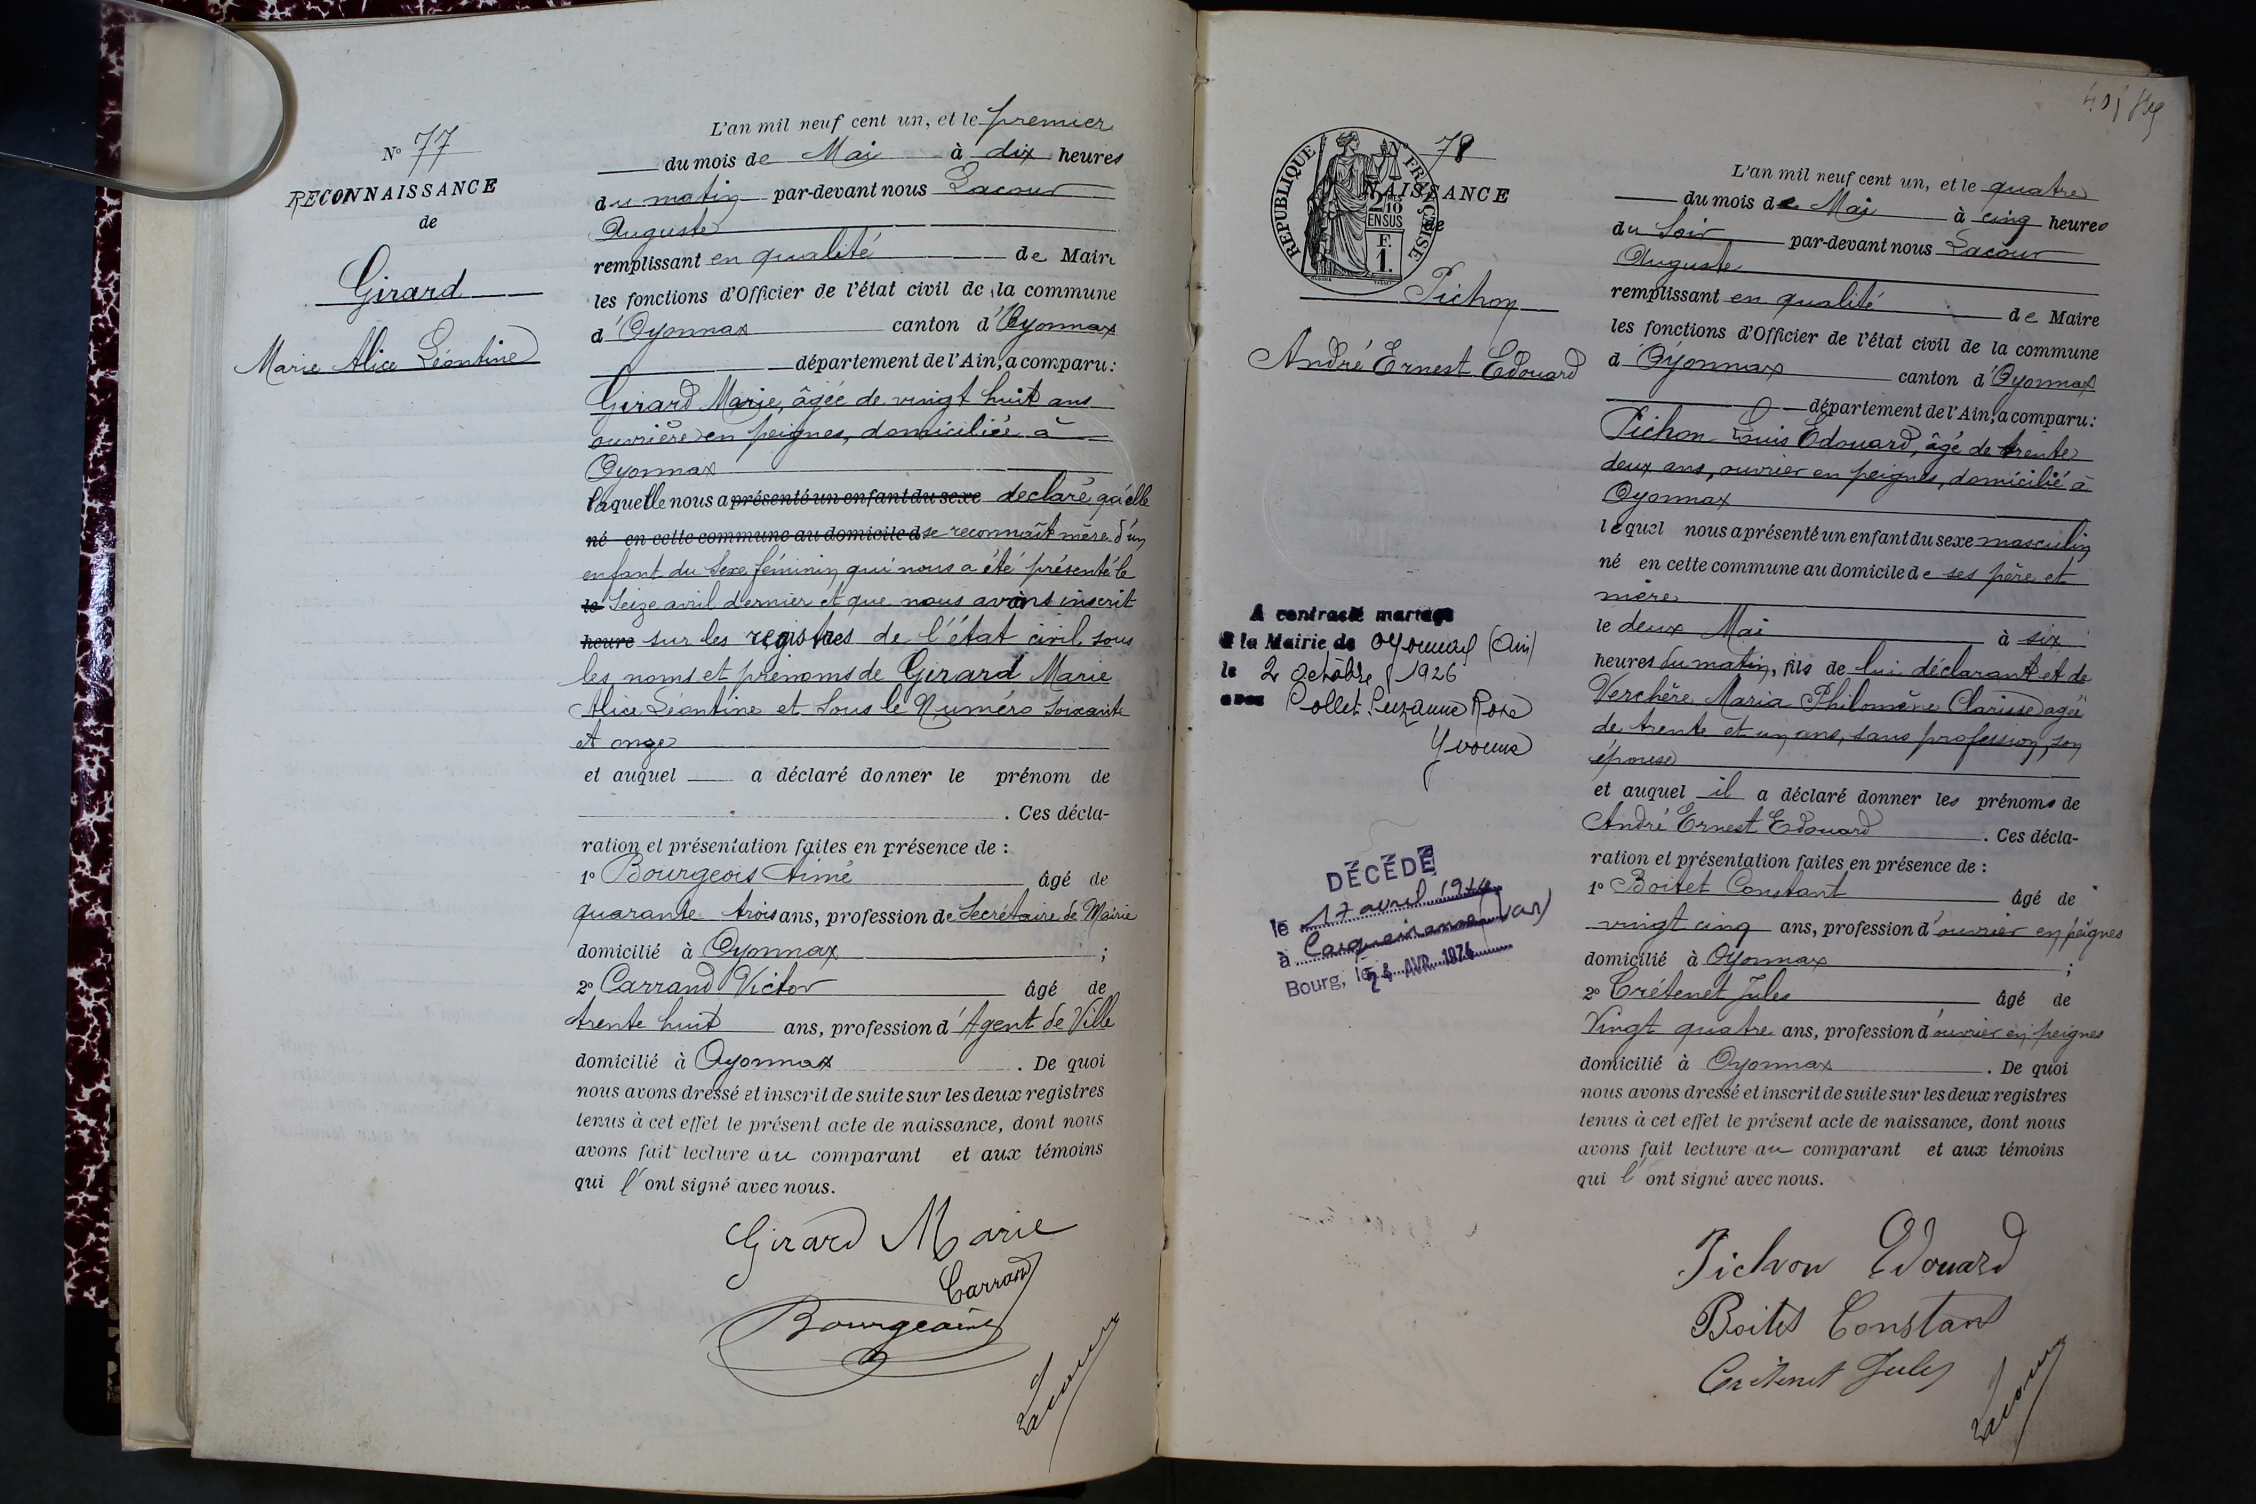 N° 77
RECONNAISSANCE
de
Girard
Marie Alice Léontine
L'an mil neuf cent un, et le premier
du mois de Mai à dix heures
du matin par-devant nous Lacour
Auguste
remplissant en qualité de Maire
les fonctions d'Officier de l'état civil de la commune
d'Oyonnax canton d'Oyonnax
département de l'Ain, a comparu :
Girard Marie, âgée de vingt huit ans
ouvrière en peignes, domiciliée à
Oyonnax
laquelle nous a présenté un enfant du sexe declaré qu'elle
né en cette commune au domicile d se reconnaît mère d'un
enfant du sexe féminin qui nous a été présenté le
le Seize avril dernier et que nous avons inscrit
heure sur les registres de l'état civil sous
les noms et prénoms de Girard Marie
Alice Léontine et sous le Numéro soixante
et onze
et auquel a déclaré donner le prénom de
. Ces décla-
ration et présentation faites en présence de :
1° Bourgeois Aimé âgé de
quarante trois ans, profession de Secrétaire de Mairie
domicilié à Oyonnax ;
2° Carrand Victor âgé de
trente huit ans, profession d'Agent de Ville
domicilié à Oyonnax . De quoi
nous avons dressé et inscrit de suite sur les deux registres
tenus à cet effet le présent acte de naissance, dont nous
avons fait lecture au comparant et aux témoins
qui l'ont signé avec nous.
Girard Marie
Carrand
Bourgeois
Lacour
78
RÉPUBLIQUE FRANÇAISE
2/10 EN SUS
F. 1.
NAISSANCE
de
Pichon
André Ernest Edouard
A contracté mariage
à la Mairie de Oyonnax (Ain)
le 2 octobre 1926
avec Collet Suzanne Rose
Yvonne
DÉCÉDÉ
le 17 avril 1974
à Carqueiranne (Var)
Bourg, le 24 AVR. 1974
L'an mil neuf cent un, et le quatre
du mois de Mai à cinq heures
du soir par-devant nous Lacour
Auguste
remplissant en qualité de Maire
les fonctions d'Officier de l'état civil de la commune
d'Oyonnax canton d'Oyonnax
département de l'Ain, a comparu :
Pichon Louis Edouard, âgé de trente
deux ans, ouvrier en peignes, domicilié à
Oyonnax
lequel nous a présenté un enfant du sexe masculin
né en cette commune au domicile de ses père et
mère
le deux Mai à six
heures du matin, fils de lui déclarant et de
Verchère Maria Philomène Clarisse agée
de trente et un ans, sans profession, son
épouse
et auquel il a déclaré donner les prénoms de
André Ernest Edouard . Ces décla-
ration et présentation faites en présence de :
1° Boitet Constant âgé de
vingt cinq ans, profession d'ouvrier en peignes
domicilié à Oyonnax ;
2° Crétenet Jules âgé de
Vingt quatre ans, profession d'ouvrier en peignes
domicilié à Oyonnax . De quoi
nous avons dressé et inscrit de suite sur les deux registres
tenus à cet effet le présent acte de naissance, dont nous
avons fait lecture au comparant et aux témoins
qui l'ont signé avec nous.
Pichon Edouard
Boitet Constant
Crétenet Jules
Lacour